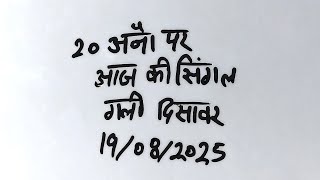 20 अनै पर
आज की सिंगल
गली दिसावर
19/08/2025